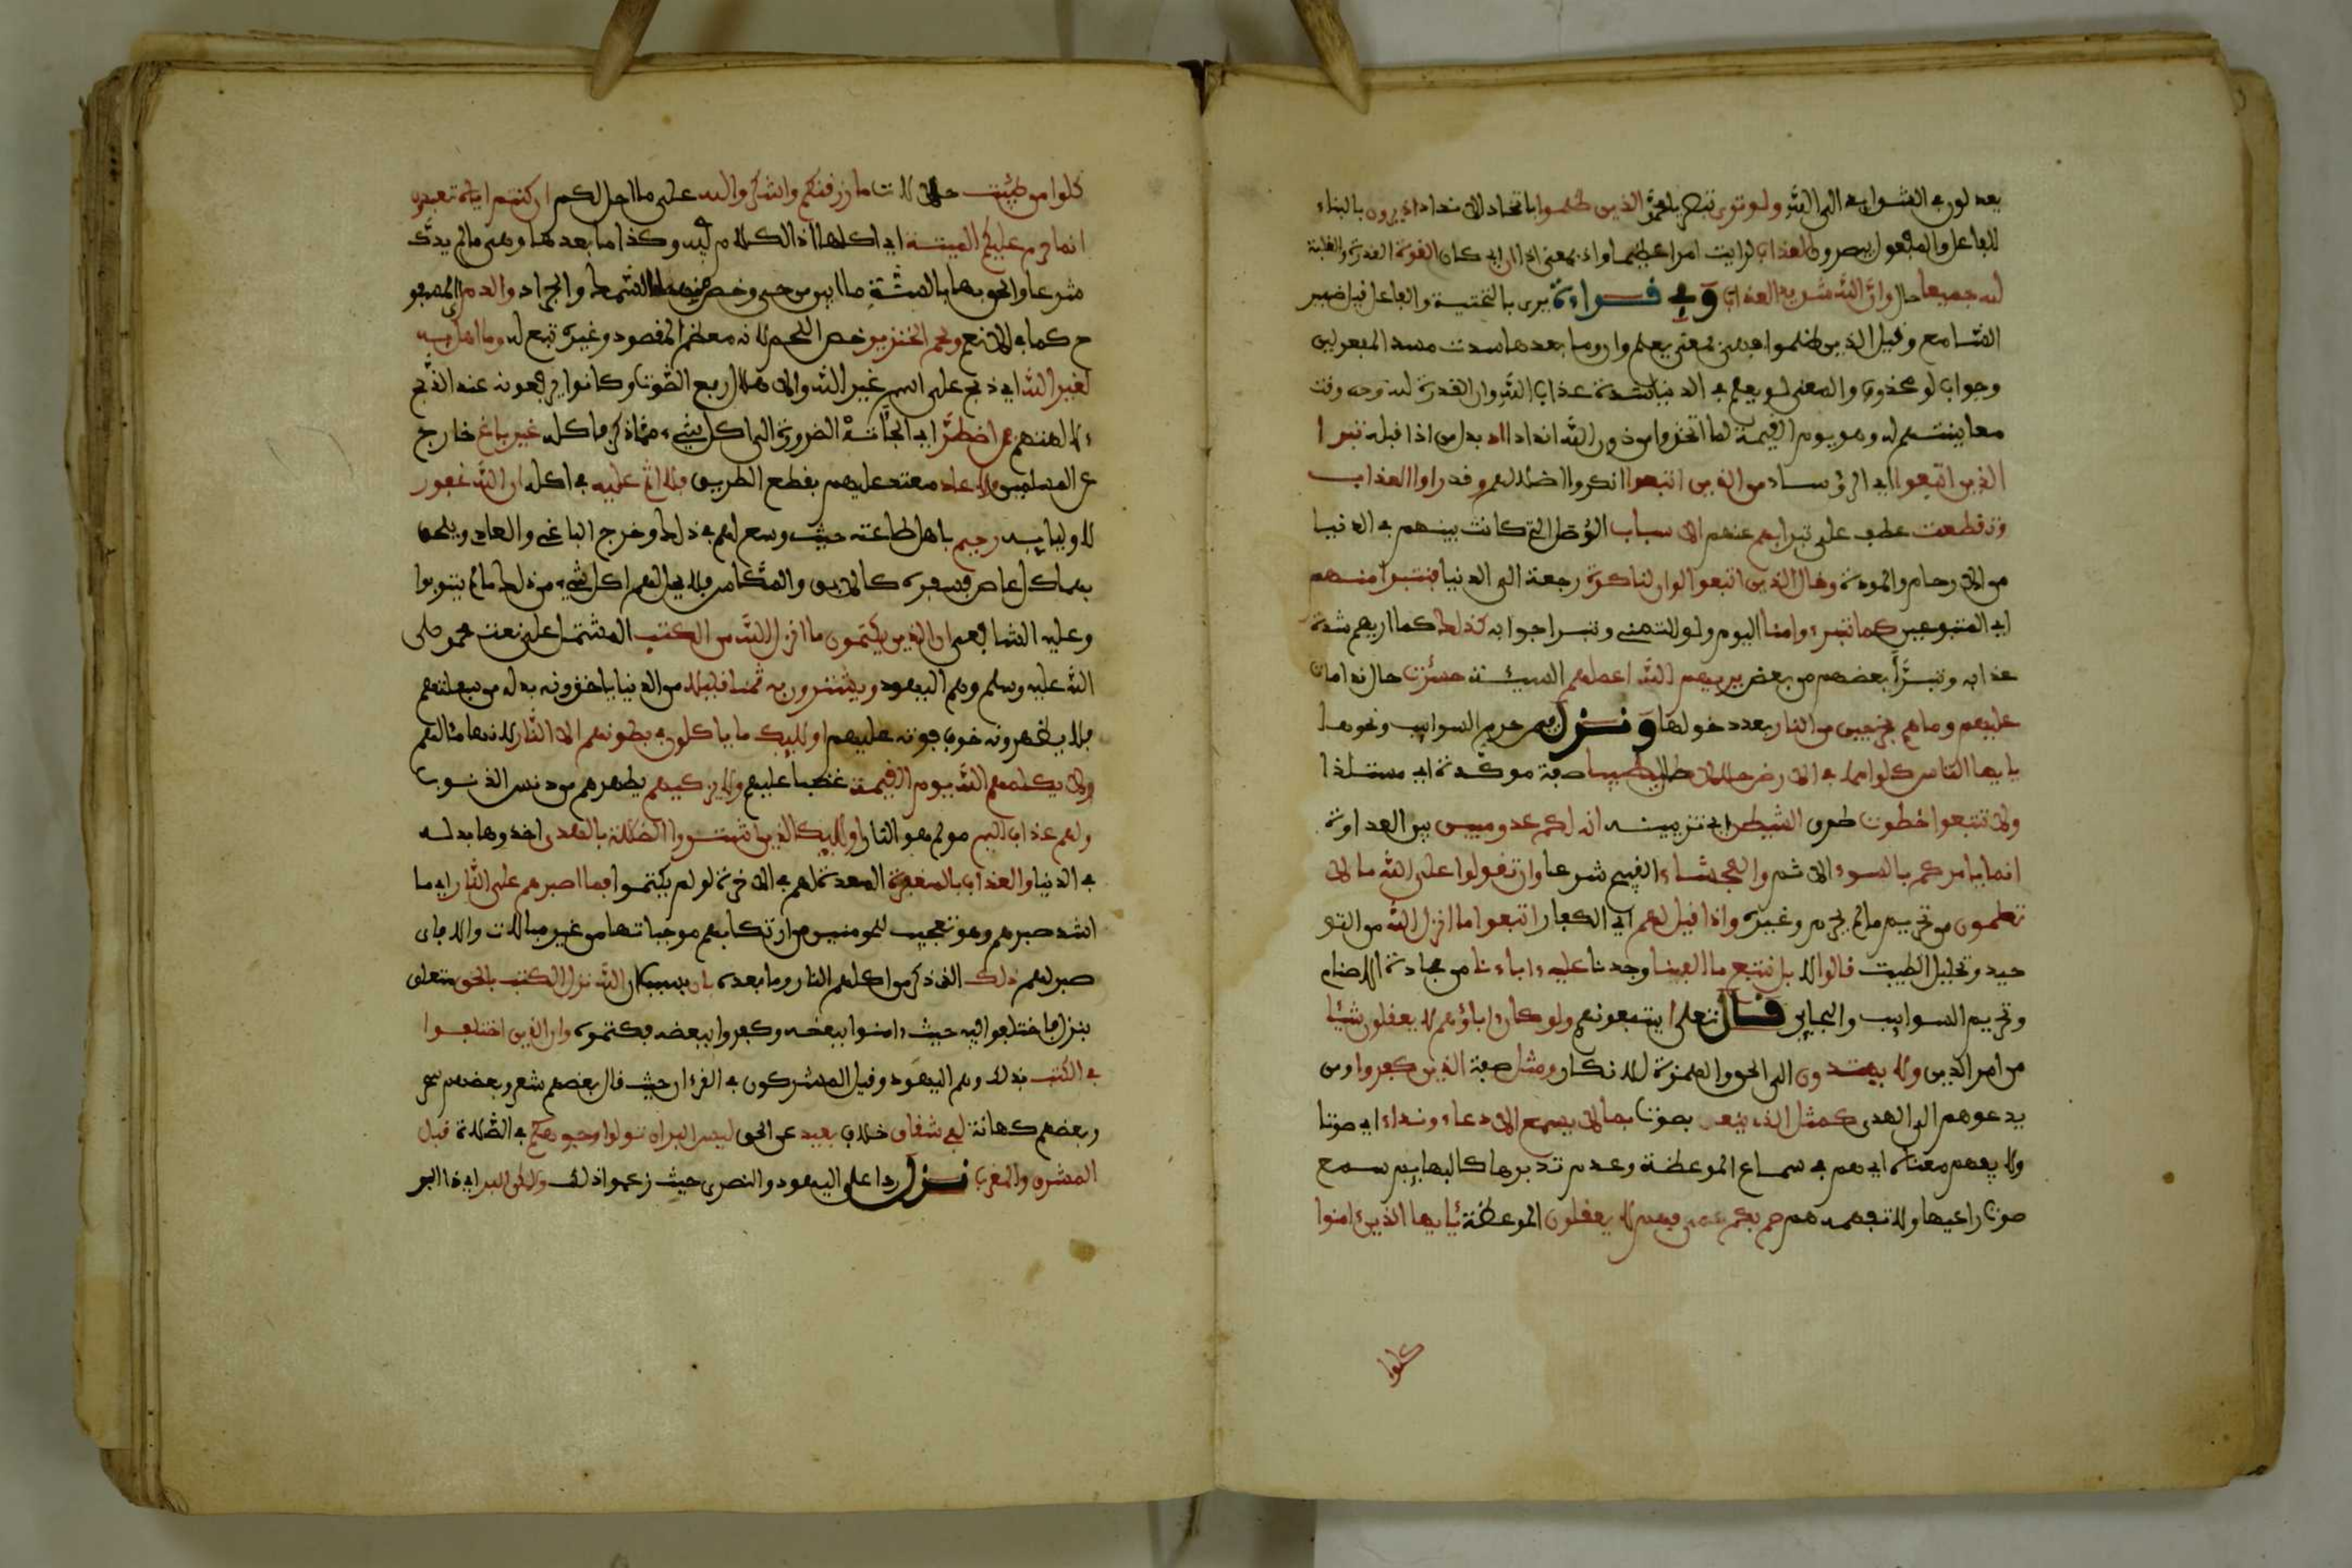 بعدلون في الثواب الى الله ولو ترى تبصر يا محمد الذين ظلموا باتخاد الانداد اذ يرون بالبناء
للفاعل والمفعول يبصرون العذاب لرايت امرا عظيما واذ بمعنى اذا ان اي كان القوة القدرة والغلبة
لله جميعا حال وان الله شديد العذاب وفي قراءة يرى بالتحتية والفاعل قيل ضمير
السامع وقيل الذين ظلموا فهي بمعنى يعلم وان وما بعدها سدت مسد المفعولين
وجواب لو محذوف والمعنى لو يعلم في الدنيا شدة عذاب الله وان القدرة لله وحده وقت
معاينتهم له وهو يوم القيمة لما اتخذوا من دون الله اندادا اذ بدل من اذا قبله تبرا
الذين اتبعوا اي الرؤساء من الذين اتبعوا انكروا اضلالهم وقد راوا العذاب
وتقطعت عطف على تبرا بهم عنهم الاسباب الوصل التي كانت بينهم في الدنيا
من الارحام والمودة وقال الذين اتبعوا لو ان لنا كرة رجعة الى الدنيا فنتبرا منهم
اي المتبوعين كما تبرءوا منا اليوم ولو للتمني ونتبرا جوابه كذلك كما اريهم شدة
عذابه وتبرا بعضهم من بعض يريهم الله اعملهم السيئة حسرت حال ندامات
عليهم وما هم بخرجين من النار بعد دخولها ونزل فيمن حرم السوايب ونحوها
يايها الناس كلوا مما في الارض حللا طيبا صفة موكدة اي مستلذا
ولا تتبعوا خطوت طرق الشيطن اي تزيينه انه لكم عدو مبين بين العداوة
انما يامركم بالسوء الاثم والفحشاء القبيح شرعا وان تقولوا على الله ما لا
تعلمون من تحريم ما لم يحرم وغيره واذا قيل لهم اي الكفار اتبعوا ما انزل الله من التو
حيد وتحليل الطيبت قالوا لا بل نتبع ما الفينا وجدنا عليه ءاباءنا من عبادة الاصنام
وتحريم السوايب والبحاير قال تعلى ايتبعونهم ولو كان ءاباؤهم لا يعقلون شيئا
من امر الدين ولا يهتدون الى الحق والهمزة للانكار ومثل صفة الذين كفروا ومن
يدعوهم الى الهدى كمثل الذي ينعق بصوت بما لا يسمع الا دعاء ونداء اي صوتا
ولا يفهم معناه اي هم في سماع الموعظة وعدم تدبرها كالبهايم تسمع
صوت راعيها ولا تفهمه هم صم بكم عمي فهم لا يعقلون الموعظة يايها الذين ءامنوا
كلوا
كلوا من طيبت حللات ما رزقنكم واشكروا لله على ما احل لكم ان كنتم اياه تعبدون
انما حرم عليكم الميتة اي اكلها اذ الكلام فيه وكذا ما بعدها وهي ما لم يذك
شرعا والحق بها بالسنة ما ابين من حي وخص منها السمك والجراد والدم اي المسفو
ح كما في الانعم ولحم الخنزير خص اللحم لانه معظم المقصود وغيره تبع له وما اهل به
لغير الله اي ذبح على اسم غير الله والاهلال رفع الصوت وكانوا يرفعونه عند الذبح
ءالهتهم فمن اضطر اي الجاته الضرورة الى اكل شيء مما ذكر فاكله غير باغ خارج
عن المسلمين ولا عاد معتد عليهم بقطع الطريق فلا اثم عليه في اكله ان الله غفور
لاوليايه رحيم باهل طاعته حيث وسع لهم في ذلك وخرج الباغي والعادي ويلحق
بهما كل عاص بسفره كالابق والمكاس فلا يحل لهم اكل شيء من ذلك ما لم يتوبوا
وعليه الشافعي ان الذين يكتمون ما انزل الله من الكتب المشتمل على نعت محمد صلى
الله عليه وسلم وهم اليهود ويشترون به ثمنا قليلا من الدنيا ياخذونه بدله من سفلتهم
فلا يظهرونه خوف فوته عليهم اوليك ما ياكلون في بطونهم الا النار لانها مئالهم
ولا يكلمهم الله يوم القيمة غضبا عليهم ولا يزكيهم يطهرهم من دنس الذنوب
ولهم عذاب اليم مولم هو النار اوليك الذين اشتروا الضللة بالهدى اخذوها بدله
في الدنيا والعذاب بالمغفرة المعدة لهم في الاخرة لو لم يكتموا فما اصبرهم على النار اي ما
اشد صبرهم وهو تعجيب للمومنين من ارتكابهم موجباتها من غير مبالات والا فاي
صبر لهم ذلك الذي ذكر من اكلهم النار وما بعده بان بسبب ان الله نزل الكتب بالحق متعلق
بنزل فاختلفوا فيه حيث ءامنوا ببعضه وكفروا ببعضه بكتمه وان الذين اختلفوا
في الكتب بذلك وهم اليهود وقيل المشركون في القرءان حيث قال بعضهم شعر وبعضهم سحر
وبعضهم كهانة لفي شقاق خلاف بعيد عن الحق ليس البر ان تولوا وجوهكم في الصلاة قبل
المشرق والمغرب نزل ردا على اليهود والنصرى حيث زعموا ذلك ولكن البر اي ذا البر